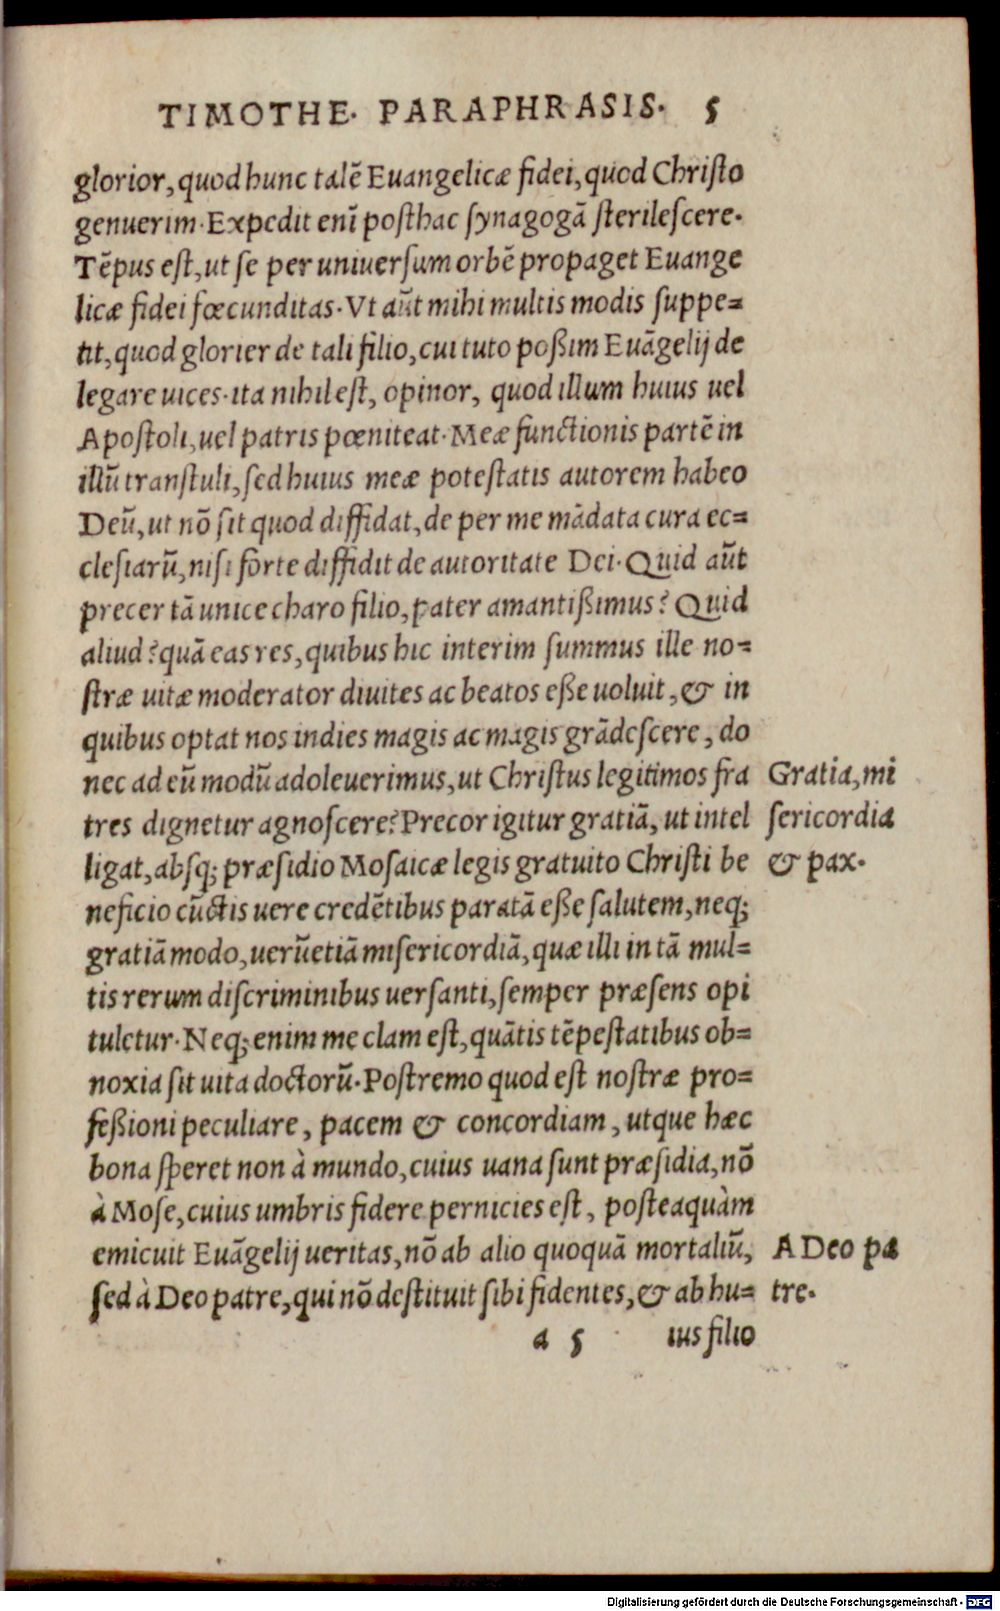 TIMOTHE. PARAPHRASIS. 5
glorior, quod hunc talẽ Euangelicæ fidei, quod Christo
genuerim. Expedit enĩ posthac synagogã sterilescere.
Tẽpus est, ut se per uniuersum orbẽ propaget Euange
licæ fidei fœcunditas. Vt aũt mihi multis modis suppe=
tit, quod glorier de tali filio, cui tuto poßim Euãgelij de
legare uices. ita nihil est, opinor, quod illum huius uel
Apostoli, uel patris pœniteat. Meæ functionis partẽ in
illũ transtuli, sed huius meæ potestatis autorem habeo
Deũ, ut nõ sit quod diffidat, de per me mãdata cura ec=
clesiarũ, nisi forte diffidit de autoritate Dei. Quid aũt
precer tã unice charo filio, pater amantißimus? Quid
aliud? quã eas res, quibus hic interim summus ille no=
stræ uitæ moderator diuites ac beatos eße uoluit, & in
quibus optat nos indies magis ac magis grãdescere, do
nec ad eũ modũ adoleuerimus, ut Christus legitimos fra
tres dignetur agnoscere? Precor igitur gratiã, ut intel
ligat, absq; præsidio Mosaicæ legis gratuito Christi be
neficio cũctis uere credẽtibus paratã eße salutem, neq;
gratiã modo, uerũetiã misericordiã, quæ illi in tã mul=
tis rerum discriminibus uersanti, semper præsens opi
tuletur. Neq; enim me clam est, quãtis tẽpestatibus ob=
noxia sit uita doctorũ. Postremo quod est nostræ pro=
feßioni peculiare, pacem & concordiam, utque hæc
bona speret non à mundo, cuius uana sunt præsidia, nõ
à Mose, cuius umbris fidere pernicies est, posteaquàm
emicuit Euãgelij ueritas, nõ ab alio quoquã mortaliũ,
sed à Deo patre, qui nõ destituit sibi fidentes, & ab hu=
a 5 ius filio
Gratia, mi
sericordia
& pax.
A Deo pa
tre.
Digitalisierung gefördert durch die Deutsche Forschungsgemeinschaft - DFG